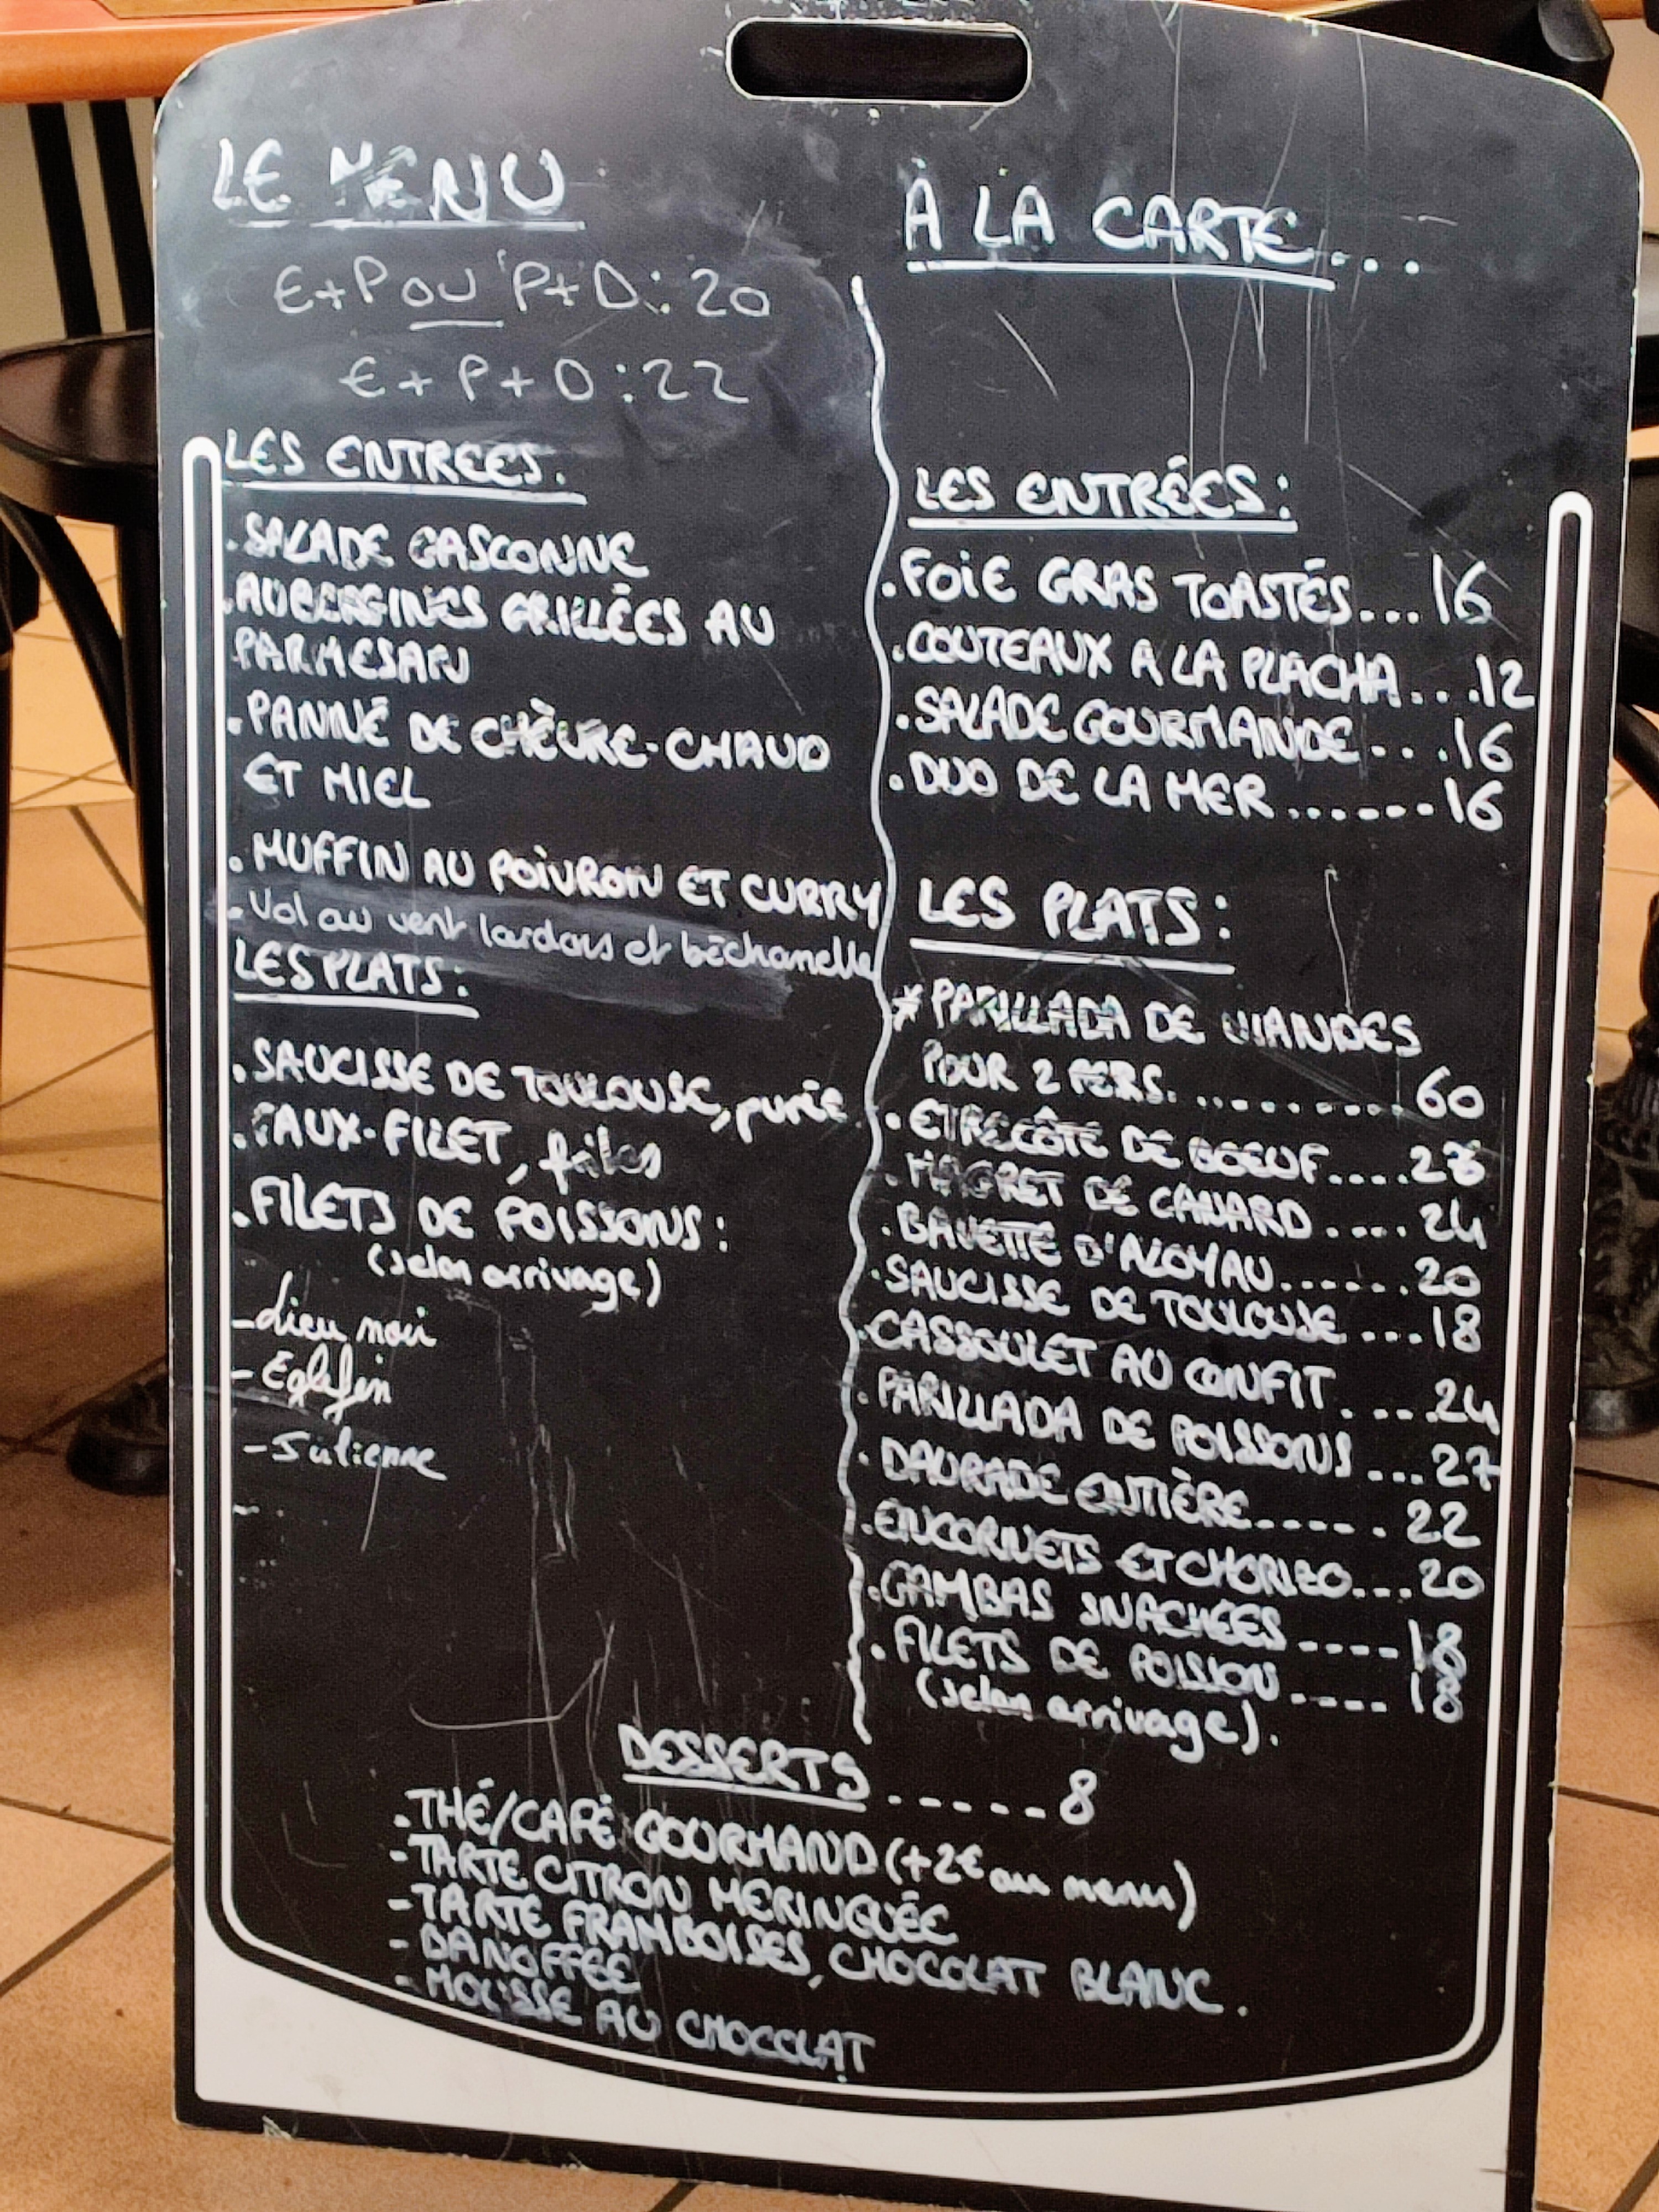 LE MENU
E+P OU P+D : 20
E + P + D : 22
LES ENTREES.
. SALADE GASCONNE
. AUBERGINES GRILLÉES AU
PARMESAN
. PANNÉ DE CHÈVRE-CHAUD
ET MIEL
. MUFFIN AU POIVRON ET CURRY
. Vol au vent lardons et béchamelle
LES PLATS :
. SAUCISSE DE TOULOUSE, purée
. FAUX-FILET, frites
. FILETS DE POISSONS :
(selon arrivage)
- Lieu noir
- Eglefin
- Julienne
-
À LA CARTE...
LES ENTRÉES :
. FOIE GRAS TOASTÉS... 16
. COUTEAUX A LA PLACHA... 12
. SALADE GOURMANDE... 16
. DUO DE LA MER...... 16
LES PLATS :
* PARILLADA DE VIANDES
POUR 2 PERS........... 60
. ETRECÔTE DE BOEUF....
. MAGRET DE CANARD.... 24
. BAVETTE D'ALOYAU...... 20
. SAUCISSE DE TOULOUSE... 18
. CASSOULET AU CONFIT.... 24
. PARILLADA DE POISSONS... 27
. DAURADE ENTIÈRE..... 22
. ENCORNETS ET CHORIZO... 20
. GAMBAS SNACKÉES.... 18
. FILETS DE POISSION.... 18
(selon arrivage).
DESSERTS ..... 8
. THÉ/CAFÉ GOURMAND (+2€ au menu)
- TARTE CITRON MERINGUÉE
- TARTE FRAMBOISES, CHOCOLAT BLANC.
- BANOFFEE
- MOUSSE AU CHOCOLAT